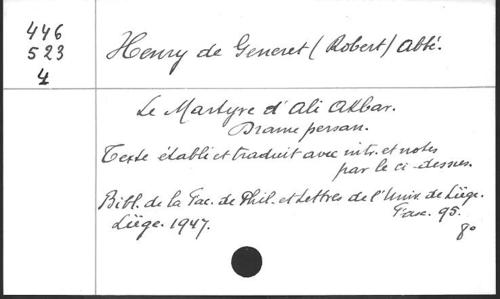 446
523
4
Henry de Generet (Robert) Abbé.
Le Martyre d'Ali Akbar.
Drame persan.
Texte établi et traduit avec intr. et notes
par le ci-dessus.
Bibl. de la Fac. de Phil. et Lettres de l'Univ. de Liège.
Fasc. 95.
Liège. 1947.
8°